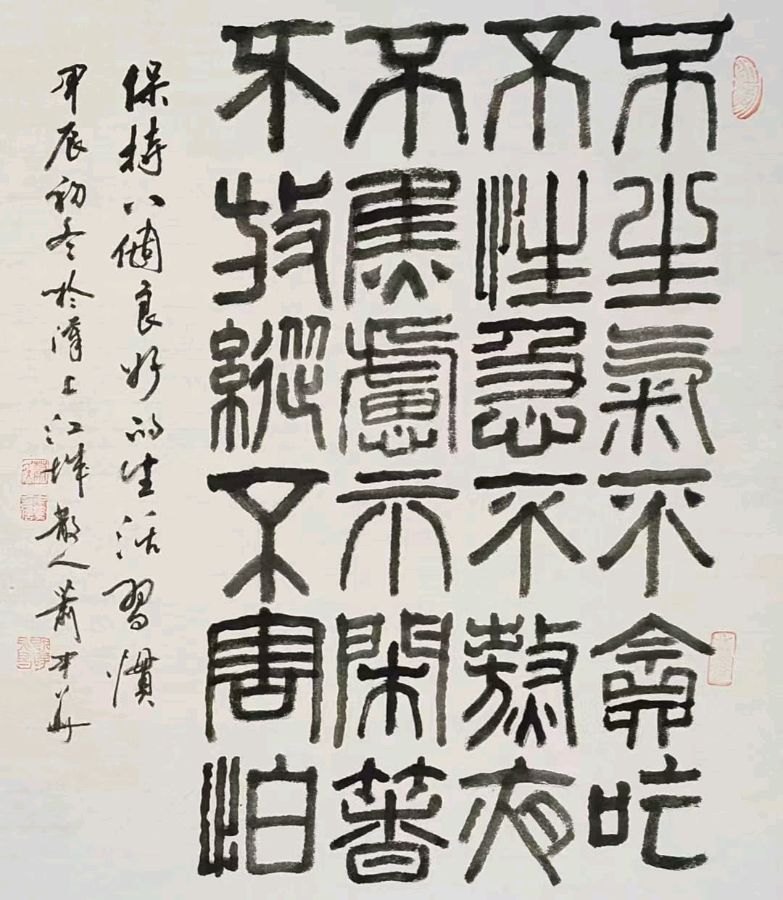 不生氣不貪吃
不性急不熬夜
不焦慮不閑著
不放縱不害怕
保持八個良好的生活習慣
甲辰初冬於漢上江城散人蕭